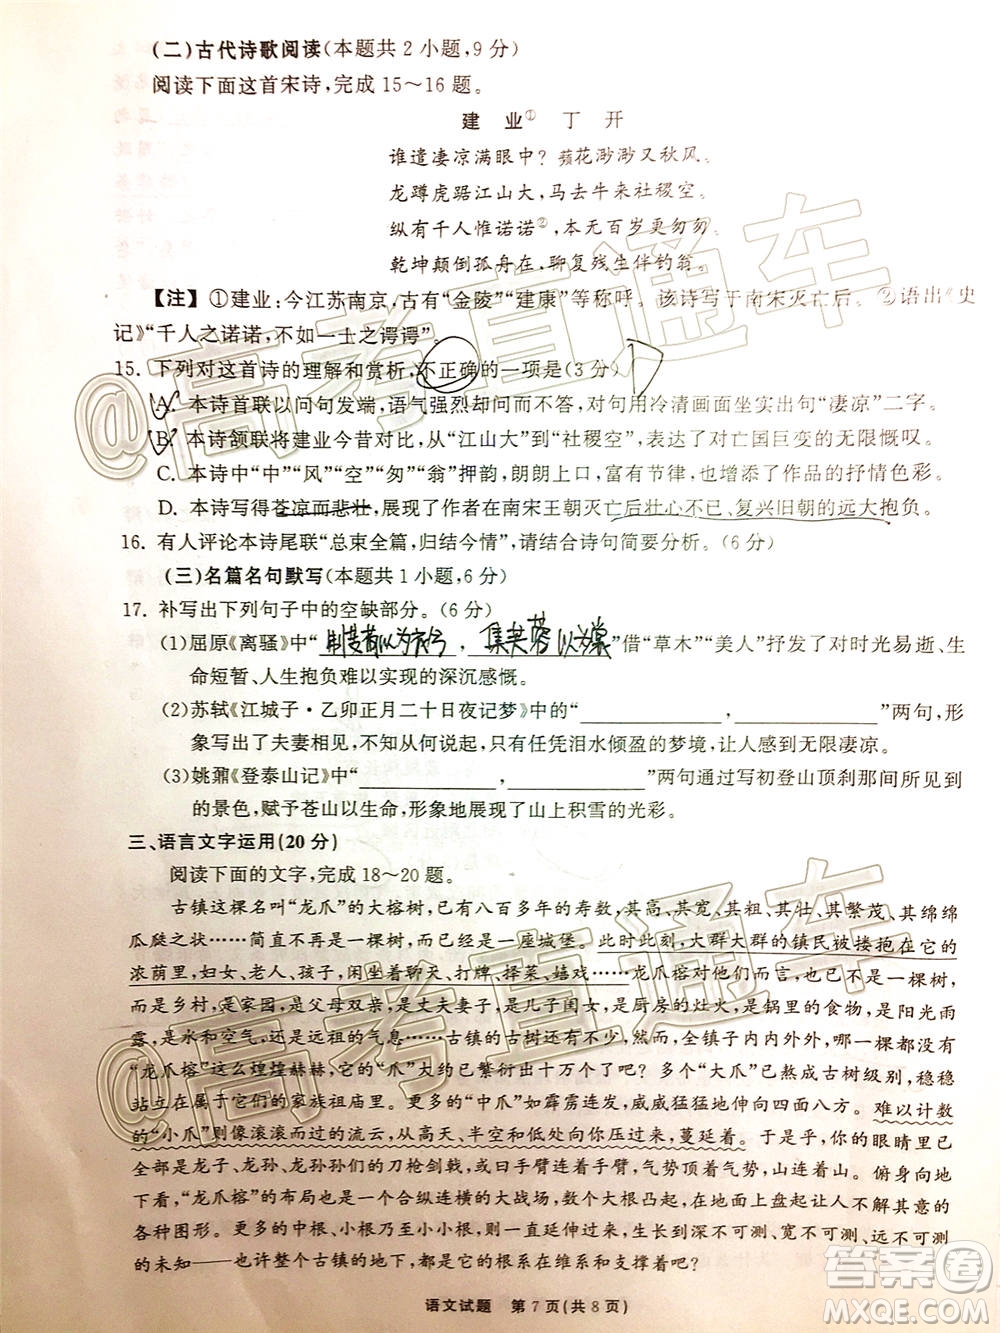 (二)古代诗歌阅读(本题共2小题,9分)
阅读下面这首宋诗,完成15～16题。
建 业① 丁 开
谁遣凄凉满眼中? 蘋花渺渺又秋风。
龙蹲虎踞江山大,马去牛来社稷空。
纵有千人惟诺诺②,本无百岁更匆匆。
乾坤颠倒孤舟在,聊复残生伴钓翁。
【注】①建业:今江苏南京,古有“金陵”“建康”等称呼。该诗写于南宋灭亡后。②语出《史
记》“千人之诺诺,不如一士之谔谔”。
15. 下列对这首诗的理解和赏析,不正确的一项是(3分) D
A. 本诗首联以问句发端,语气强烈却问而不答,对句用冷清画面坐实出句“凄凉”二字。
B. 本诗颔联将建业今昔对比,从“江山大”到“社稷空”,满含对亡国巨变的无限慨叹。
C. 本诗中“中”“风”“空”“匆”“翁”押韵,朗朗上口,富有节律,增添了作品的抒情色彩。
D. 本诗写得苍凉而悲壮,展现了作者在南宋王朝灭亡后壮心不已、复兴旧朝的远大抱负。
16. 有人评论本诗尾联“总束全篇,归结今情”,请结合诗句简要分析。(6分)
(三)名篇名句默写(本题共1小题,6分)
17. 补写出下列句子中的空缺部分。(6分)
(1)屈原《离骚》中“ , 集芙蓉以为裳”借“草木”“美人”抒发了对时光易逝、生
命短暂、人生抱负难以实现的深沉感慨。
(2)苏轼《江城子·乙卯正月二十日夜记梦》中的“____________,____________”两句,形
象写出了夫妻相见,不知从何说起,只有任凭泪水倾盈的梦境,让人感到无限凄凉。
(3)姚鼐《登泰山记》中“____________,____________”两句通过写初登山顶刹那间所见到
的景色,赋予苍山以生命,形象地展现了山上积雪的光彩。
三、语言文字运用(20分)
阅读下面的文字,完成18～20题。
古镇这棵名叫“龙爪”的大榕树,已有八百多年的寿数,其高、其宽、其粗、其壮、其繁茂、其绵绵
瓜瓞之状……简直不再是一棵树,而是一座城堡。此时此刻,大群大群的镇民被搂抱在它的
浓荫里,妇女、老人、孩子,闲坐着聊天、打牌、择菜、嬉戏……龙爪榕对他们而言,已不是一棵树,
而是乡村,是家园,是父母双亲,是丈夫妻子,是儿子闺女,是厨房的灶火,是锅里的食物,是阳光雨
露,是水和空气,不可一日或缺。古镇的古树还有很多,全镇可以统计的大小榕树,哪一棵都没有
“龙爪榕”这么煌煌赫赫,它的“爪”大约已繁衍出十万个了吧!“大爪”已熬成古树级别,稳稳
站立在属于它们的家族祖庙里。更多的“中爪”如霹雳出道,威威猛猛地伸向四面八方。难以计数
的“小爪”则像滚滚而过的流云,从高天、半空和低处向你压过来,蔓延着。于是乎,你的眼睛里已
全部是龙子、龙孙、龙孙孙们的刀枪剑戟,或曰手臂连着手臂,气势顶顶着气势。俯身向地
下看,“龙爪榕”的布局也是一个合纵连横的大战场,数个大根凸起,必然组成你不了解其意的
各种图形。更多的中根、小根乃至小小根,更是四面延伸而去,生长到深不可测、宽不可测、远不可测
的未知——也许整个古镇的地下,都是它的根系在维系和支撑着吧!
语文试题 第7页(共8页)
@高考直通车
@高考直通车
答案圈
MXQE.COM